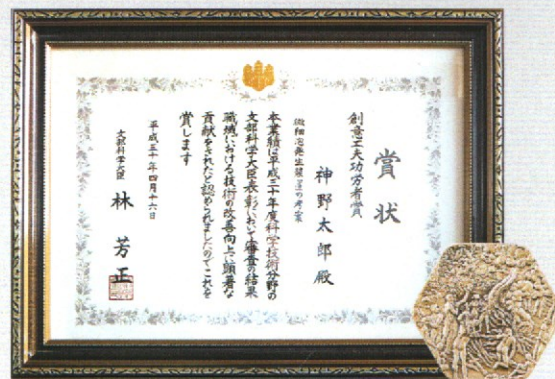 賞状
創意工夫功労者賞
神野太郎殿
微細泡発生装置の考案
本業績は平成三十年度科学技術分野の
文部科学大臣表彰において審査の結果
職域における技術の改善向上に顕著な
貢献をされたと認められましたのでこれを
賞します
平成三十年四月十六日
文部科学大臣
林芳正